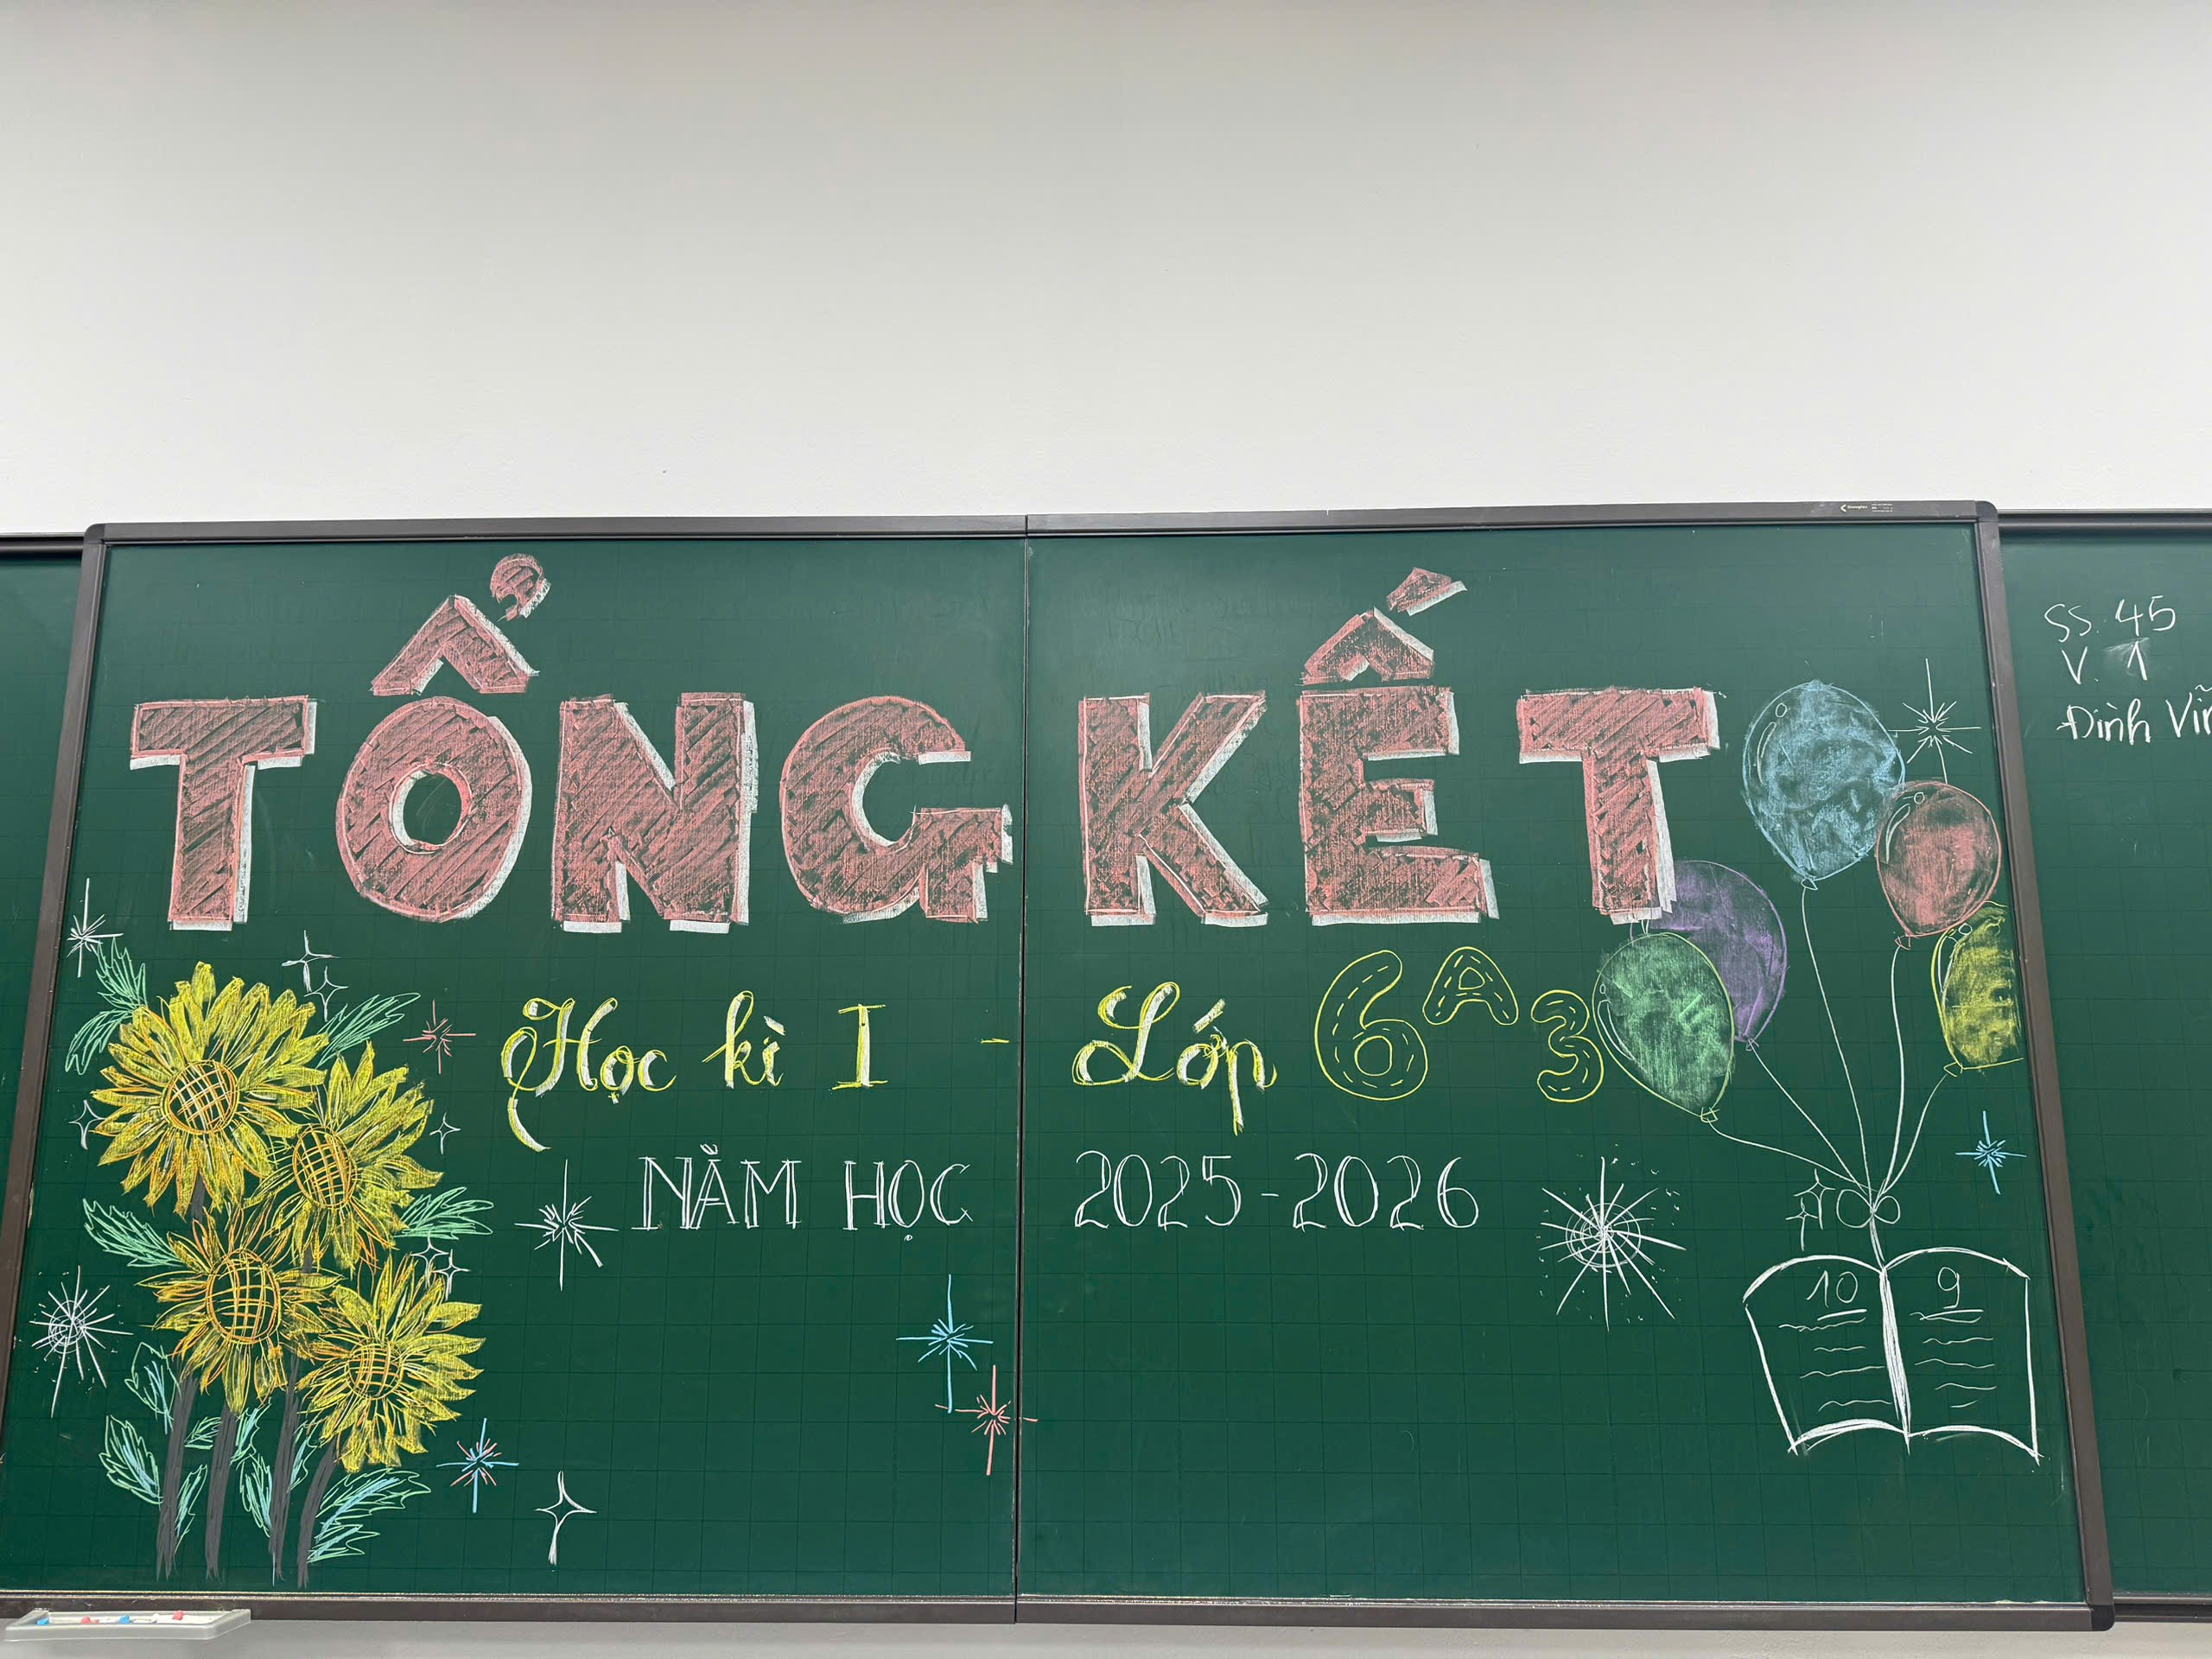 TỔNG KẾT
Học kì I - Lớp 6A3
NĂM HỌC 2025-2026
10 9
SS. 45
V. 1
Đình